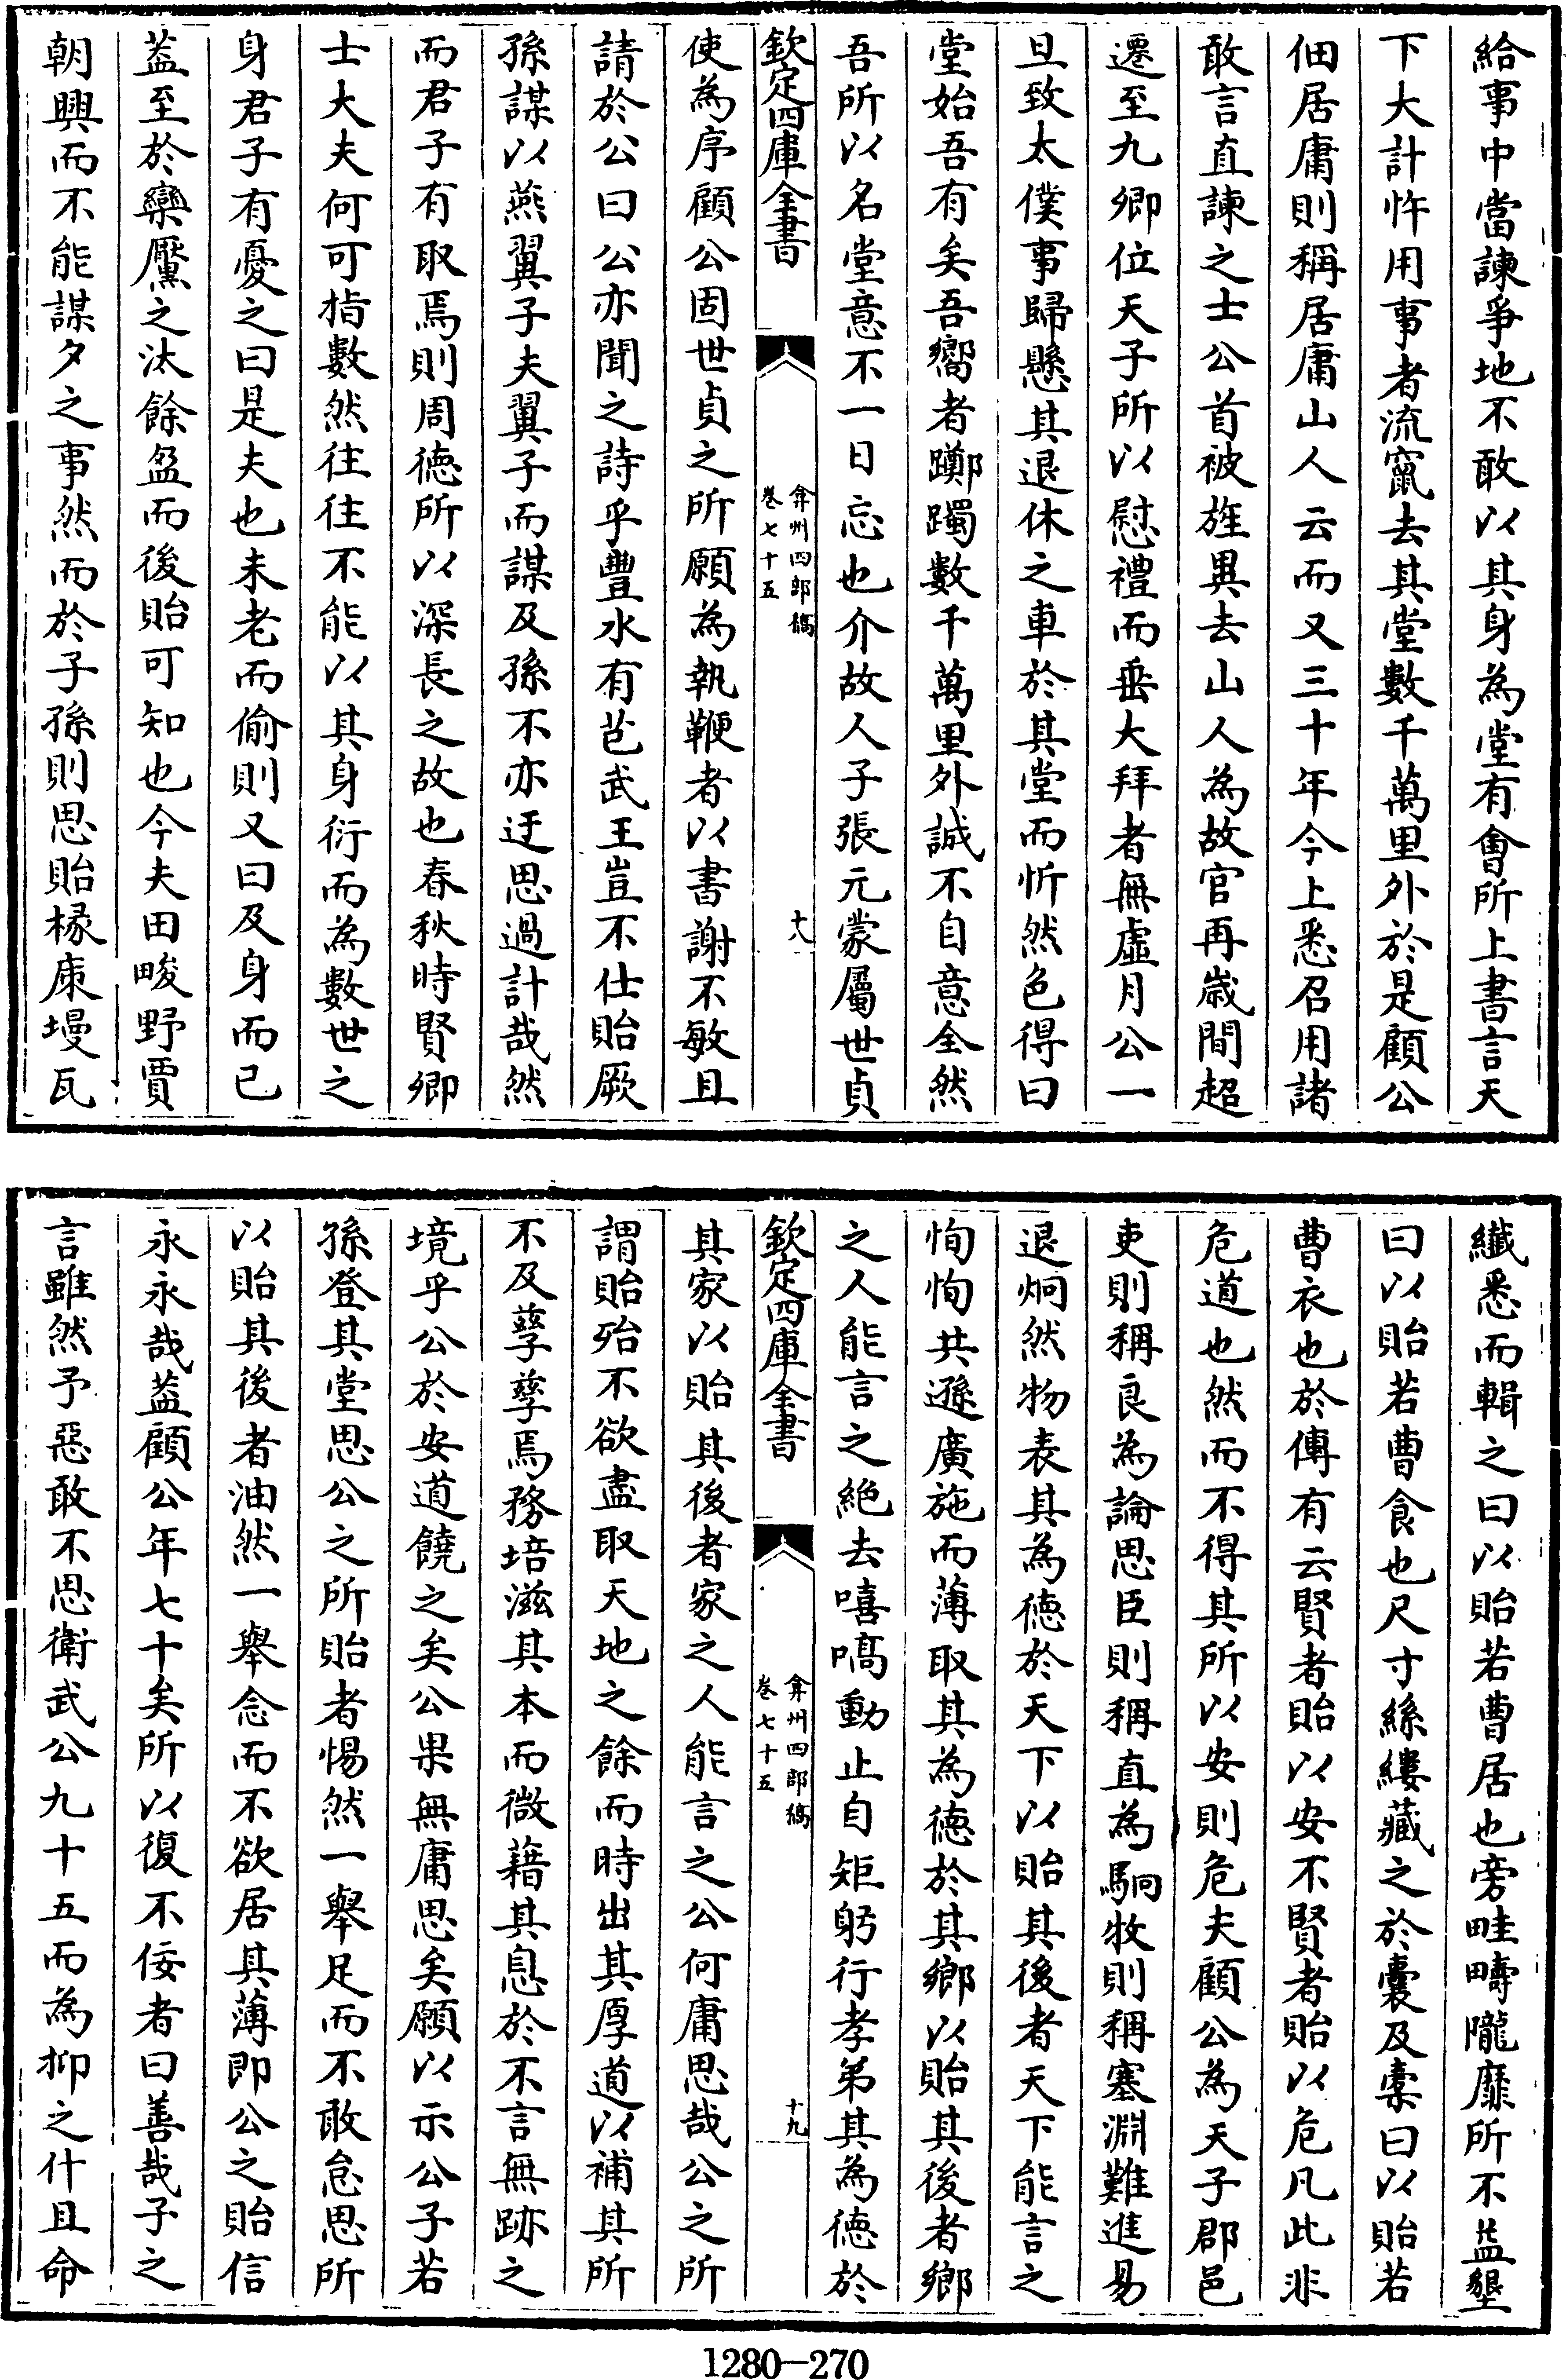 給事中當諫爭地不敢以其身為堂有會所上書言天
下大計忤用事者流竄去其堂數千萬里外於是顧公
佃居庸則稱居庸山人云而又三十年今上悉召用諸
敢言直諫之士公首被旌異去山人為故官再嵗間超
遷至九卿位天子所以慰禮而垂大拜者無虛月公一
旦致太僕事歸懸其退休之車於其堂而忻然色得曰
堂始吾有矣吾嚮者躑躅數千萬里外誠不自意全然
吾所以名堂意不一日忘也介故人子張元蒙屬世貞
欽定四庫全書
弇州四部稿
卷七十五
十八
使為序顧公固世貞之所願為執鞭者以書謝不敏且
請於公曰公亦聞之詩乎豐水有芑武王豈不仕貽厥
孫謀以燕翼子夫翼子而謀及孫不亦迂思過計哉然
而君子有取焉則周徳所以深長之故也春秋時賢卿
士大夫何可指數然往往不能以其身衍而為數世之
身君子有憂之曰是夫也未老而偷則又曰及身而已
葢至於欒黶之汰餘盈而後貽可知也今夫田畯野賈
朝興而不能謀夕之事然而於子孫則思貽椽庾墁瓦
纖悉而輯之曰以貽若曹居也旁畦疇隴靡所不葢墾
曰以貽若曹食也尺寸絲縷藏之於囊及橐曰以貽若
曹衣也於傳有云賢者貽以安不賢者貽以危凡此非
危道也然而不得其所以安則危夫顧公為天子郡邑
吏則稱良為論思臣則稱直為駉牧則稱塞淵難進易
退炯然物表其為徳於天下以貽其後者天下能言之
恂恂共遜廣施而薄取其為徳於其鄉以貽其後者鄉
之人能言之絶去嘻嗃動止自矩躬行孝弟其為徳於
欽定四庫全書
弇州四部稿
卷七十五
十九
其家以貽其後者家之人能言之公何庸思哉公之所
謂貽殆不欲盡取天地之餘而時出其厚道以補其所
不及孳孳焉務培滋其本而微藉其息於不言無跡之
境乎公於安道饒之矣公果無庸思矣願以示公子若
孫登其堂思公之所貽者惕然一舉足而不敢怠思所
以貽其後者油然一舉念而不欲居其薄即公之貽信
永永哉葢顧公年七十矣所以復不佞者曰善哉子之
言雖然予惡敢不思衛武公九十五而為抑之什且命
1280—270